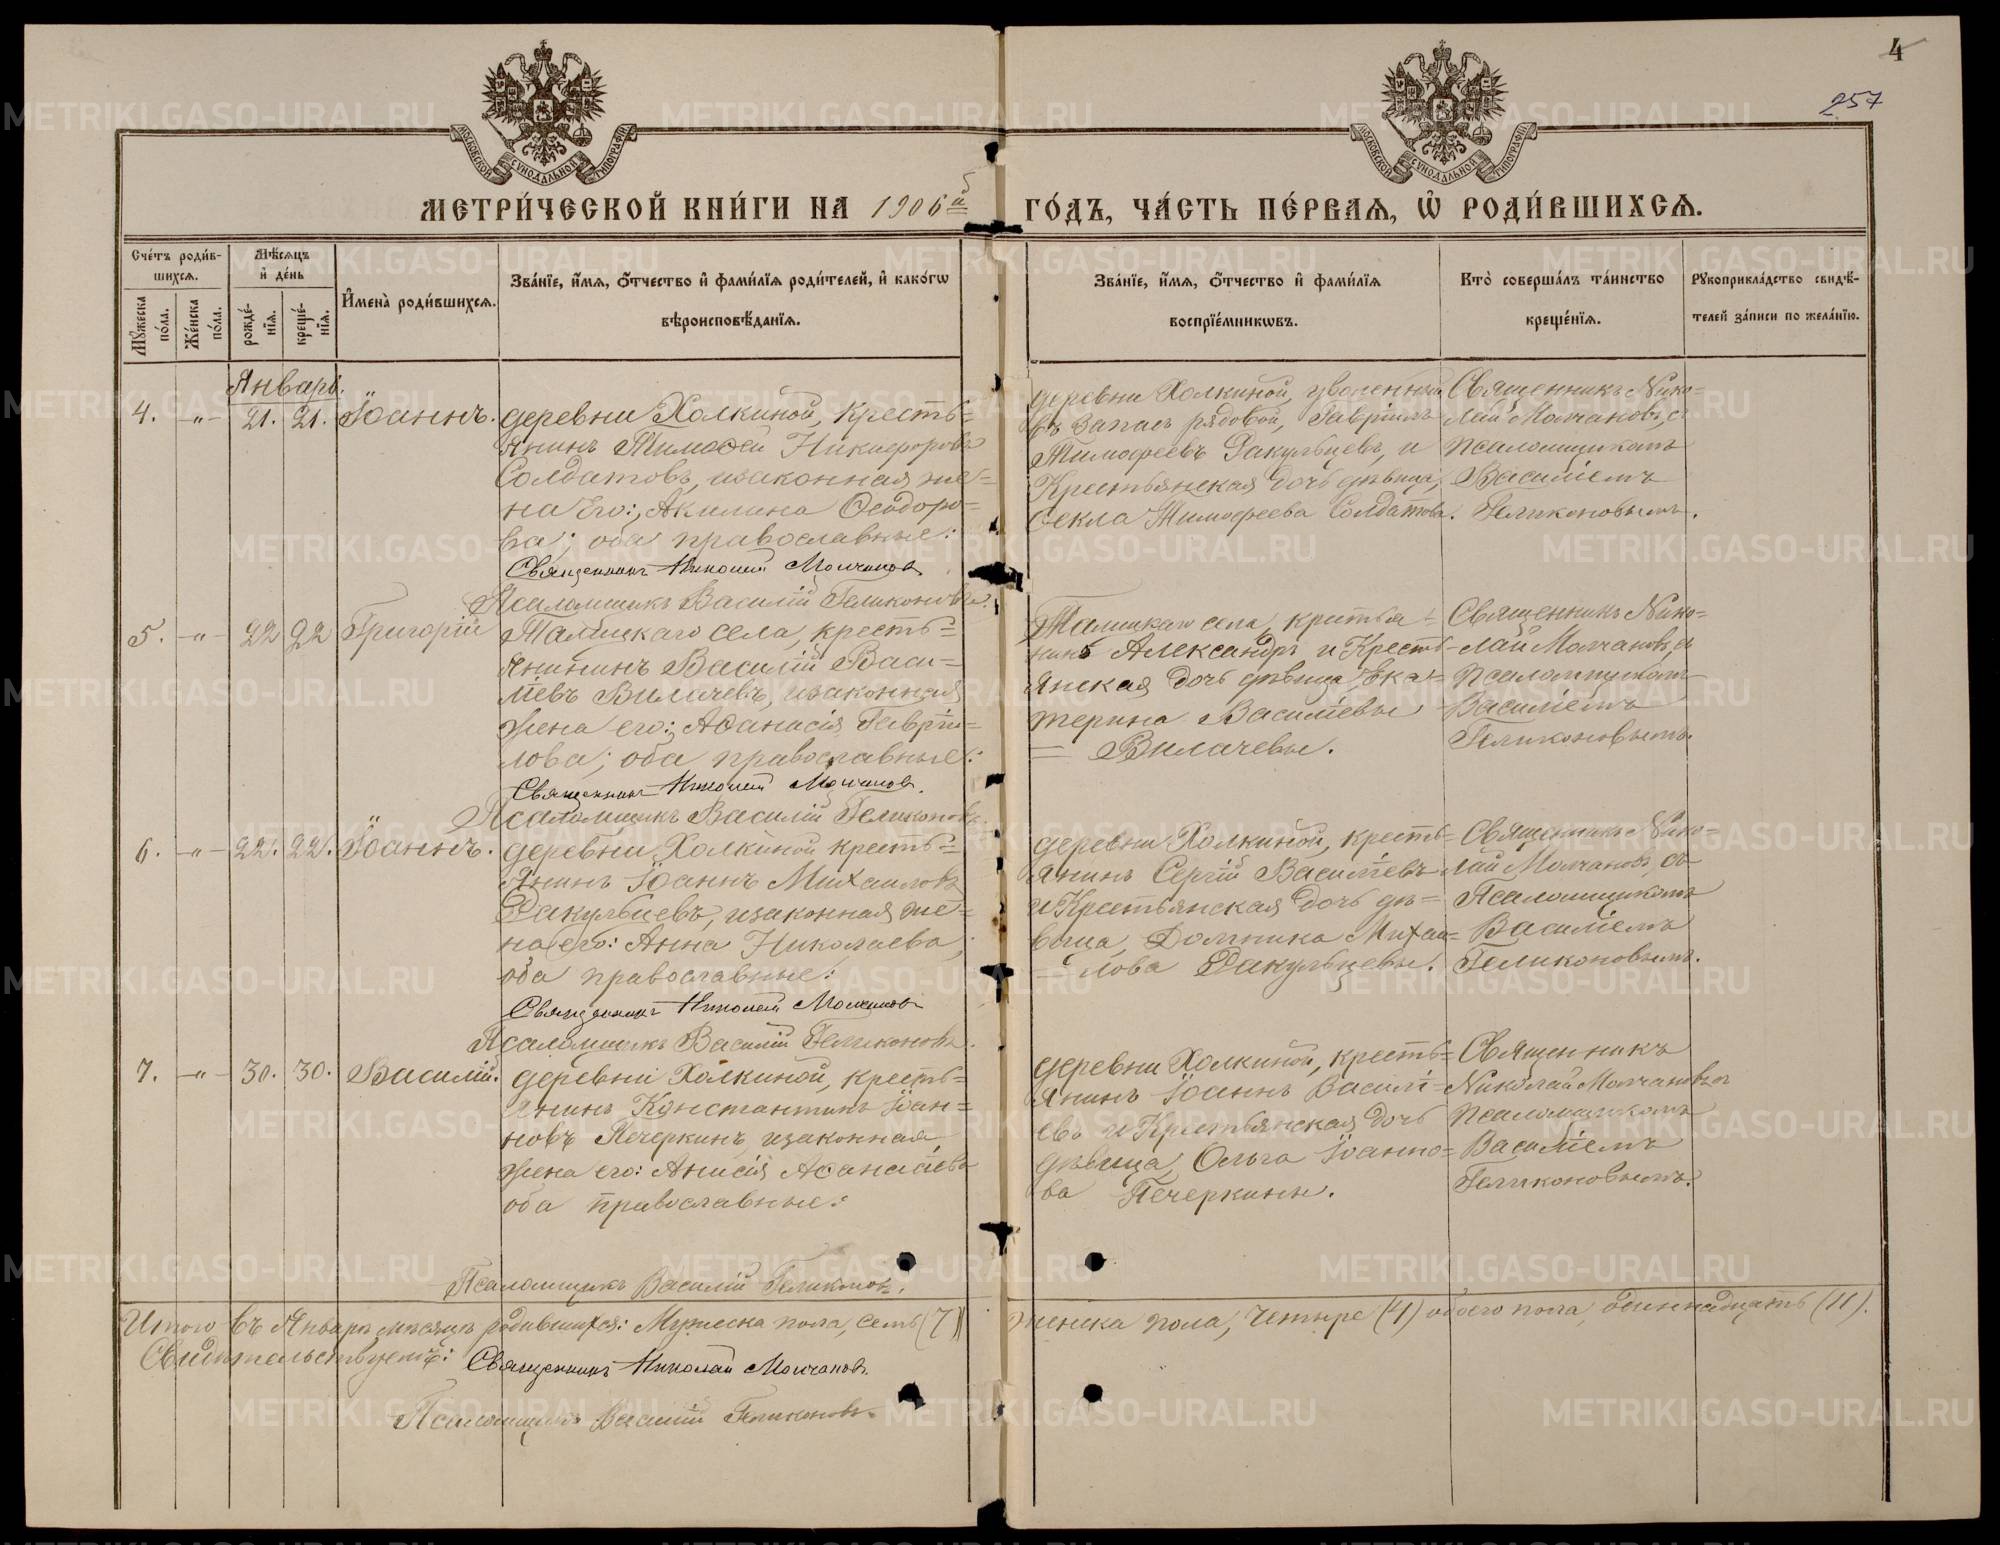 4
257
МЕТРИ́ЧЕСКОЙ КНИ́ГИ НА 1906й ГО́ДЪ, ЧА́СТЬ ПЕ́РВАЯ, Ѽ РОДИ́ВШИХСЯ.
Сче́тъ роди́в-
шихся.
Мѣ́сяцъ
и҆ де́нь
Мꙋ́жеска
по́ла.
Же́нска
по́ла.
рожде́-
нїѧ.
креще́-
нїѧ.
И҆мена̀ роди́вшихся.
Зва́нїе, и҆́мѧ, ѻ҆́тчество и҆ фами́лїѧ роди́телей, и҆ како́гѡ
вѣроисповѣ́данїѧ.
Зва́нїе, и҆́мѧ, ѻ҆́тчество и҆ фами́лїѧ
воспрїе́мникѡвъ.
Кто̀ соверша́лъ та́инство
креще́нїѧ.
Рꙋкоприкла́дство свидѣ́-
телей за́писи по жела́нїю.
Январь.
4. -„- 21. 21. Іоаннъ.
деревни Холкиной, кресть=
янинъ Тимоѳей Никифоровъ
Солдатовъ, изаконная же=
на его: Акилина Ѳеодоро=
ва; оба православные:
Священникъ Николай Молчановъ
Псаломщикъ Василій Геликоновъ.
деревни Холкиной, уволенный
въ запасъ рядовой, Гавріилъ
Тимофеевъ Ракульцевъ, и
Крестьянская дочь дѣвица,
Ѳекла Тимофеева Солдатова.
Священникъ Нико=
лай Молчановъ, съ
псаломщикомъ
Василіемъ
Геликоновымъ.
5. -„- 22 22 Григорій
Талицкаго села, кресть=
янининъ Василій Васи=
ліевъ Вилачевъ, изаконная
жена его: Аѳанасія Гаврии=
лова; оба православные:
Священникъ Николай Молчановъ.
Псаломщикъ Василій Геликоновъ.
Талицкаго села, кр­естья=
нинъ Александръ и Кресть=
янская дочь дѣвица Ека=
терина Василіевы
= Вилачевы.
Священникъ Нико=
лай Молчановъ, съ
псаломщикомъ
Василіемъ
Геликоновымъ.
6. -„- 22. 22. Іоаннъ.
деревни Холкиной кресть=
янинъ Іоаннъ Михаиловъ
Ракульцевъ, изаконная же=
на его: Анна Николаева;
оба православные:
Священникъ Николай Молчановъ
Псаломщикъ Василій Геликоновъ.
деревни Холкиной, кресть=
янинъ Сергій Василіевъ
и Крестьянская дочь дѣ=
вица, Домника Михаи=
= лова Ракульцевы.
Священникъ Нико=
лай Молчановъ, съ
Псаломщикомъ
Василіемъ
Геликоновымъ.
7. -„- 30. 30. Василій.
деревни Холкиной, кресть=
янинъ Константинъ Іоан=
новъ Печеркинъ, изаконная
жена его: Анисія Аѳанасіева
оба православные:
Псаломщикъ Василій Геликоновъ.
деревни Холкиной, кресть=
янинъ Іоаннъ Василі=
евъ и Крестьянская дочь
дѣвица, Ольга Іоанно=
ва Печеркины.
Священникъ
Николай Молчановъ съ
псаломщикомъ
Василіемъ
Геликоновымъ.
Итого въ Январѣ мѣсяцѣ родившихся: Мужеска пола, семь (7) женска пола, четыре (4) обоего пола, одиннадцать (11).
Свидѣтельствуютъ: Священникъ Николай Молчановъ.
Псаломщикъ Василій Геликоновъ.
METRIKI.GASO-URAL.RU